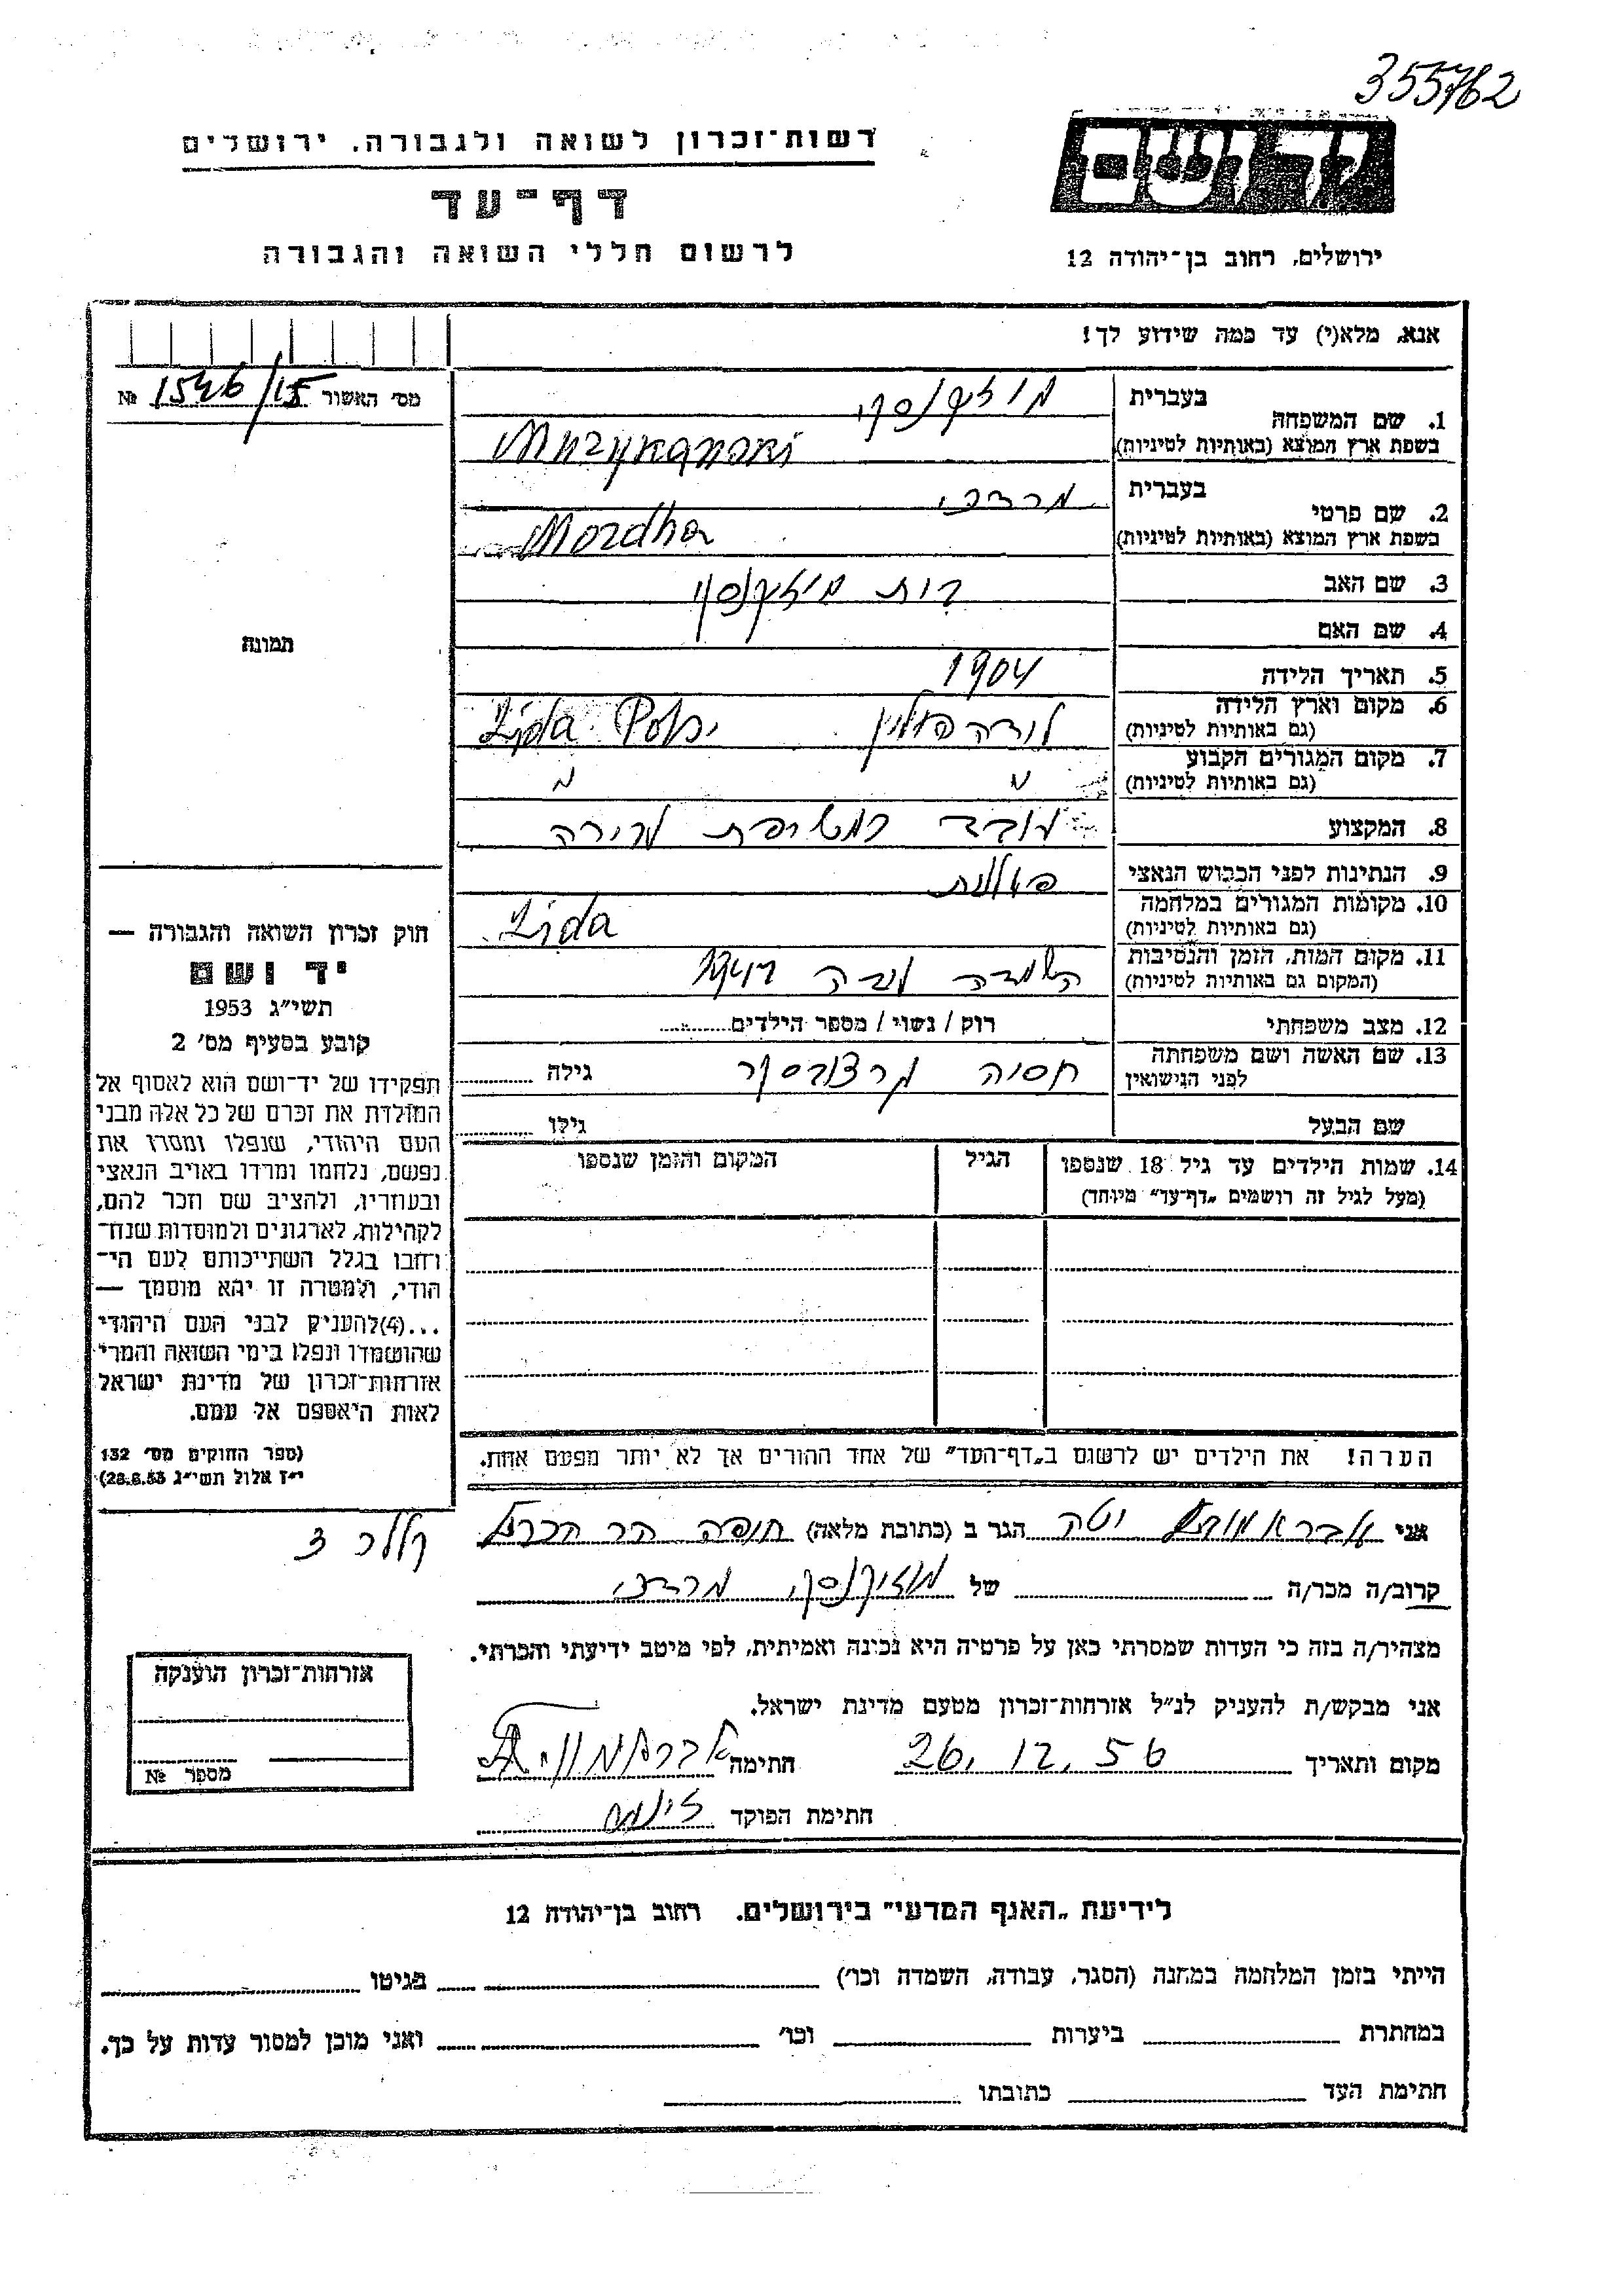 355762
רשות־זכרון לשואה ולגבורה. ירושלים
דף־עד
לרשום חללי השואה והגבורה
יד ושם
ירושלים, רחוב בן־יהודה 12
אנא, מלא(י) עד כמה שידוע לך!
מס׳ האשור 1546/15 №
1. שם המשפחה
בעברית
בשפת ארץ המוצא (באותיות לטיניות)
Muzykanski
2. שם פרטי
בעברית מרדכי
בשפת ארץ המוצא (באותיות לטיניות) Mordha
3. שם האב
4. שם האם
5. תאריך הלידה 1904
6. מקום וארץ הלידה
(גם באותיות לטיניות) לידה פולין Lida
7. מקום המגורים הקבוע
(גם באותיות לטיניות)
8. המקצוע
9. הנתינות לפני הכבוש הנאצי פולנית
10. מקומות המגורים במלחמה
(גם באותיות לטיניות) Lida
11. מקום המות, הזמן והנסיבות
(המקום גם באותיות לטיניות) השמדה לידה
12. מצב משפחתי רוק / נשוי / מספר הילדים
13. שם האשה ושם משפחתה
לפני הנישואין חסיה גילה
שם הבעל גילו
14. שמות הילדים עד גיל 18 שנספו הגיל המקום והזמן שנספו
(מעל לגיל זה רושמים „דף־עד״ מיוחד)
הערה! את הילדים יש לרשום ב„דף־העד״ של אחד ההורים אך לא יותר מפעם אחת.
תמונה
חוק זכרון השואה והגבורה —
יד ושם
תשי״ג 1953
קובע בסעיף מס׳ 2
תפקידו של יד־ושם הוא לאסוף אל
המולדת את זכרם של כל אלה מבני
העם היהודי, שנפלו ומסרו את
נפשם, נלחמו ומרדו באויב הנאצי
ובעוזריו, ולהציב שם וזכר להם,
לקהילות, לארגונים ולמוסדות שנח־
רחבו בגלל השתייכותם לעם הי־
הודי, ולמטרה זו יהא מוסמך —
...(4) להעניק לבני העם היהודי
שהושמדו ונפלו בימי השואה והמרי
אזרחות־זכרון של מדינת ישראל
לאות היאספם אל עמם.
(ספר החוקים מס׳ 132
י״ז אלול תשי״ג 28.8.53)
אני יטה הגר ב (כתובת מלאה) חיפה הר הכרמל
קרוב/ה מכר/ה של מוזיקנסקי מרדכי
מצהיר/ה בזה כי העדות שמסרתי כאן על פרטיה היא נכונה ואמיתית, לפי מיטב ידיעתי והכרתי.
אני מבקש/ת להעניק לנ״ל אזרחות־זכרון מטעם מדינת ישראל.
מקום ותאריך 26.12.56 חתימה
חתימת הפוקד
אזרחות־זכרון הוענקה
מספר №
לידיעת „האגף המדעי״ בירושלים. רחוב בן־יהודה 12
הייתי בזמן המלחמה במחנה (הסגר, עבודה, השמדה וכו׳) בגיטו
במחתרת ביערות וכו׳ ואני מוכן למסור עדות על כך.
חתימת העד כתובתו